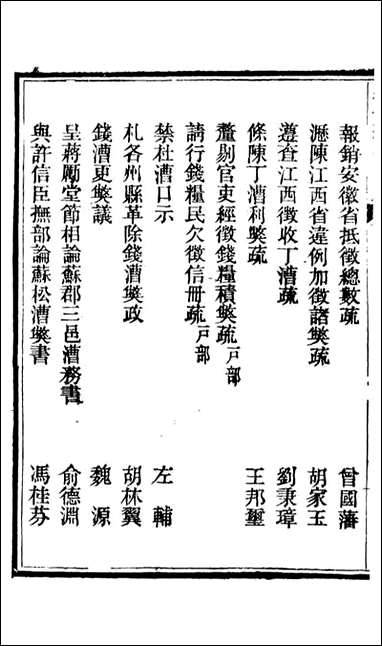 報銷安徽省抵徵總數疏 曾國藩
瀝陳江西省違例加徵諸獘疏 胡家玉
遵查江西徵收丁漕疏 劉秉璋
條陳丁漕利獘疏 王邦璽
釐剔官吏經徵錢糧積獘疏 戸部
請行錢糧民欠徵信冊疏 戸部
禁杜漕口示 左輔
札各州縣革除錢漕獘政 胡林翼
錢漕更獘議 魏源
呈蔣勵堂節相論蘇郡三邑漕務書 俞德淵
與許信臣撫部論蘇松漕獘書 馮桂芬